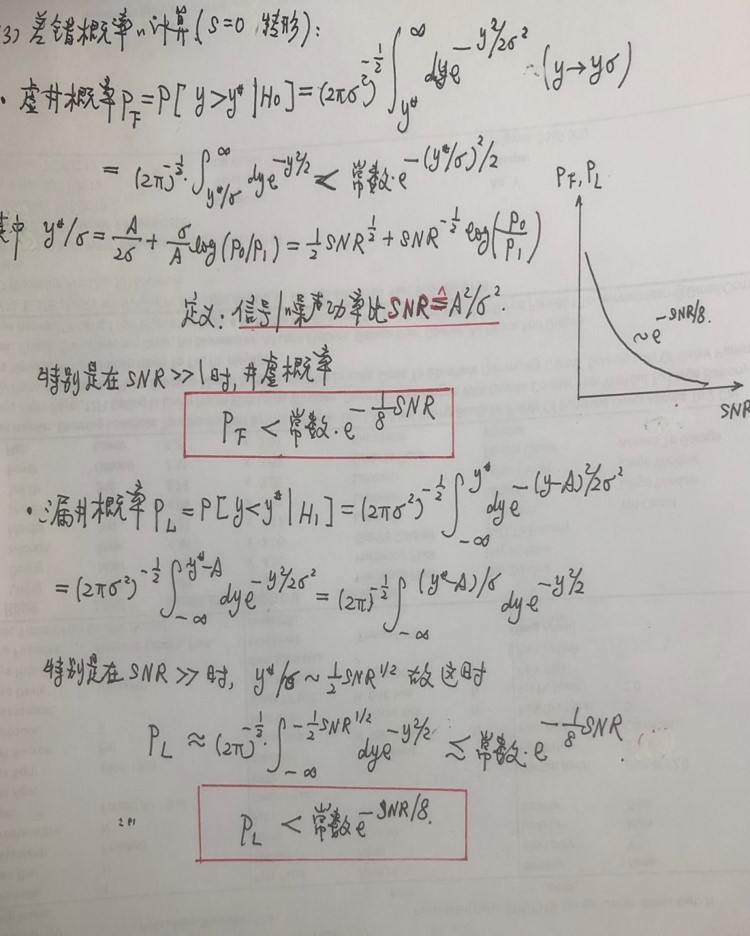 (3) 差错概率的计算(S=0 情形):
· 虚井概率 P_F = P[y>y*|H₀] = (2πσ²)^{-1/2} ∫_{y*}^{∞} dy e^{-y²/2σ²} (y→yσ)
= (2π)^{-1/2} · ∫_{y*/σ}^{∞} dy e^{-y²/2} < 常数·e^{-(y*/σ)²/2}
其中 y*/σ = A/2σ + σ/A log(P₀/P₁) = 1/2 SNR^{1/2} + SNR^{-1/2} log(P₀/P₁)
定义: 信号/噪声功率比 SNR ≙ A²/σ².
特别是在 SNR>>1时, 井虚概率
P_F < 常数·e^{-1/8 SNR}
P_F, P_L
~e^{-SNR/8}.
SNR
· 漏井概率 P_L = P[y<y*|H₁] = (2πσ²)^{-1/2} ∫_{-∞}^{y*} dy e^{-(y-A)²/2σ²}
= (2πσ²)^{-1/2} ∫_{-∞}^{y*-A} dy e^{-y²/2σ²} = (2π)^{-1/2} ∫_{-∞}^{(y*-A)/σ} dy e^{-y²/2}
特别是在 SNR>>时, y*/σ ~ 1/2 SNR^{1/2} 故 这时
P_L ≈ (2π)^{-1/2} · ∫_{-∞}^{-1/2 SNR^{1/2}} dy e^{-y²/2} ≲ 常数·e^{-1/8 SNR}.
P_L < 常数 e^{-SNR/8}.